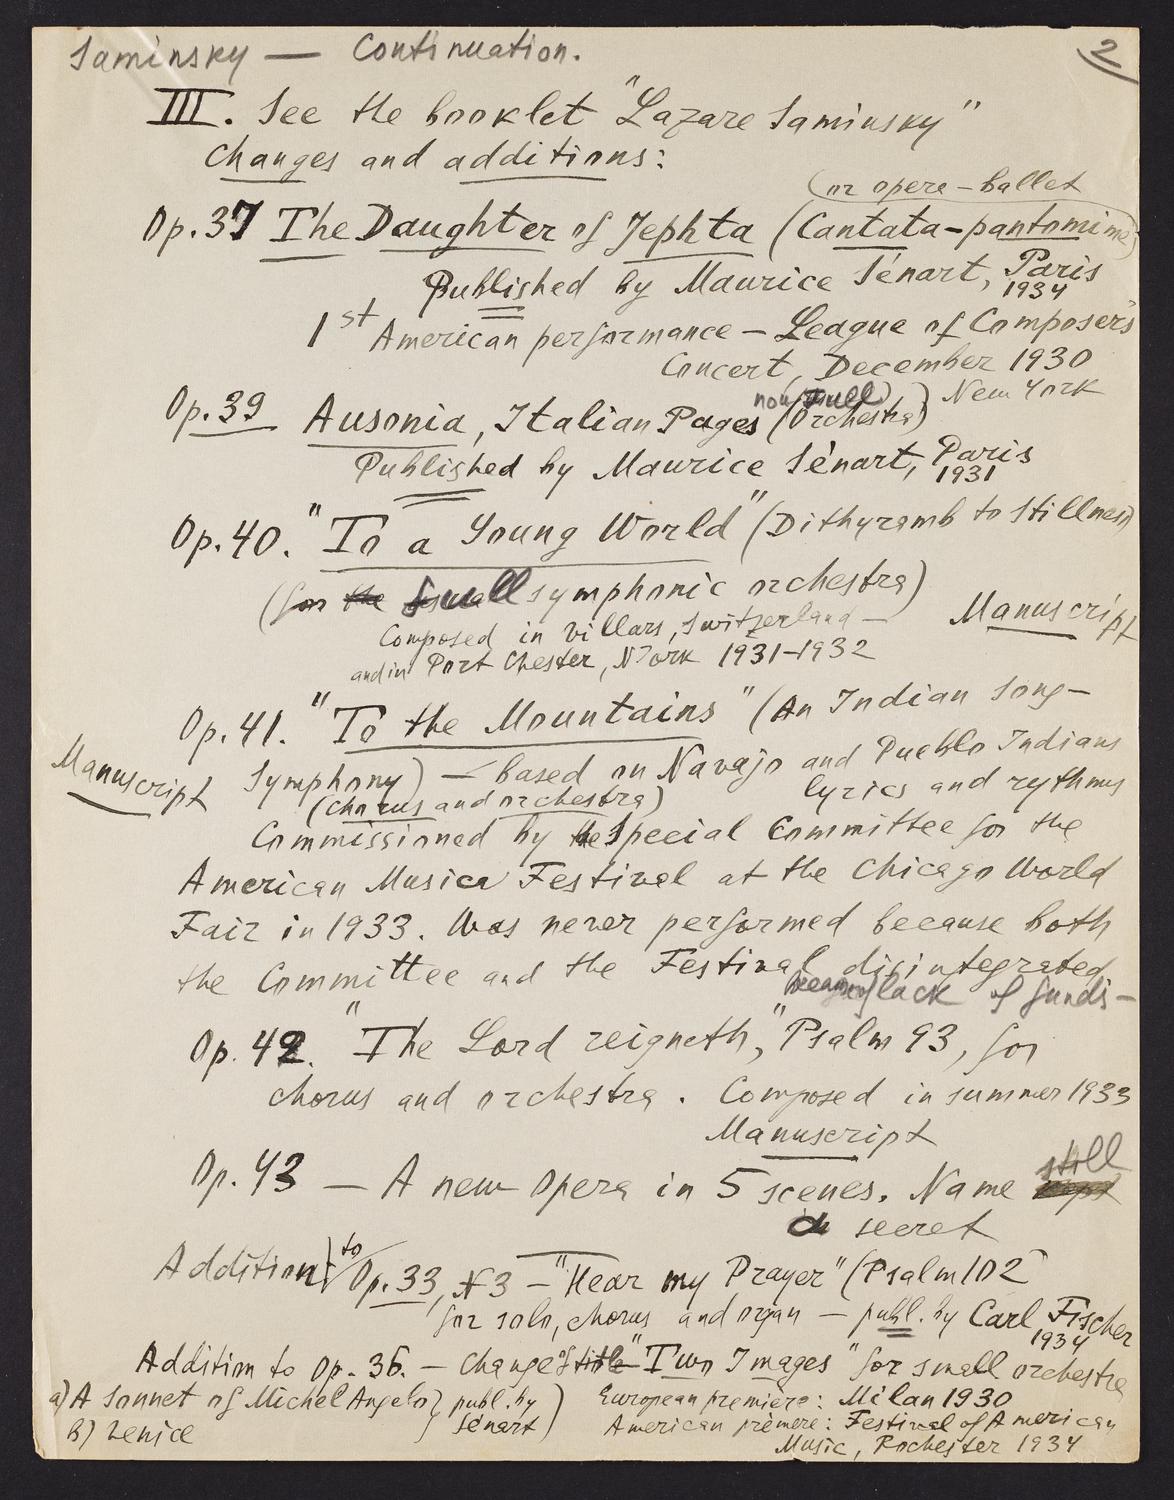 Saminsky — Continuation. 2
III. See the booklet "Lazare Saminsky"
Changes and additions:
(or opera-ballet
Op. 37 The Daughter of Jephta (Cantata-pantomime)
Published by Maurice Sénart, Paris
1934
1st American performance — League of Composers
Concert, December 1930
New York
now full
Op. 39 Ausonia, Italian Pages (Orchestra)
Published by Maurice Sénart, Paris
1931
Op. 40. "To a Young World" (Dithyramb to Stillness)
(for the small symphonic orchestra)
Manuscript
Composed in Villars, Switzerland —
and in Port Chester, N York 1931-1932
Op. 41. "To the Mountains" (An Indian Song-
Manuscript Symphony) — based on Navajo and Pueblo Indians
lyrics and rythmus
(chorus and orchestra)
Commissioned by the Special Committee for the
American Musica Festival at the Chicago World
Fair in 1933. Was never performed because both
the Committee and the Festival disintegrated
lack of funds —
Op. 42. "The Lord reigneth," Psalm 93, for
chorus and orchestra. Composed in summer 1933
Manuscript
Op. 43 — A new Opera in 5 scenes. Name still
a secret
Addition to Op. 33, N3 — "Hear my Prayer" (Psalm 102
for solo, chorus and organ — publ. by Carl Fischer
1934
Addition to Op. 36. — Change of title "Two Images" for small orchestra
a) A Sonnet of Michel Angelo } publ. by ) European première: Milan 1930
b) Venice } Sénart ) American prèmere: Festival of American
Music, Rochester 1934